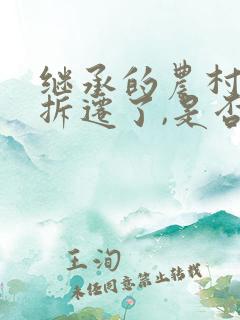 继承的农村
拆迁了,是否
王洵
未经同意禁止转载